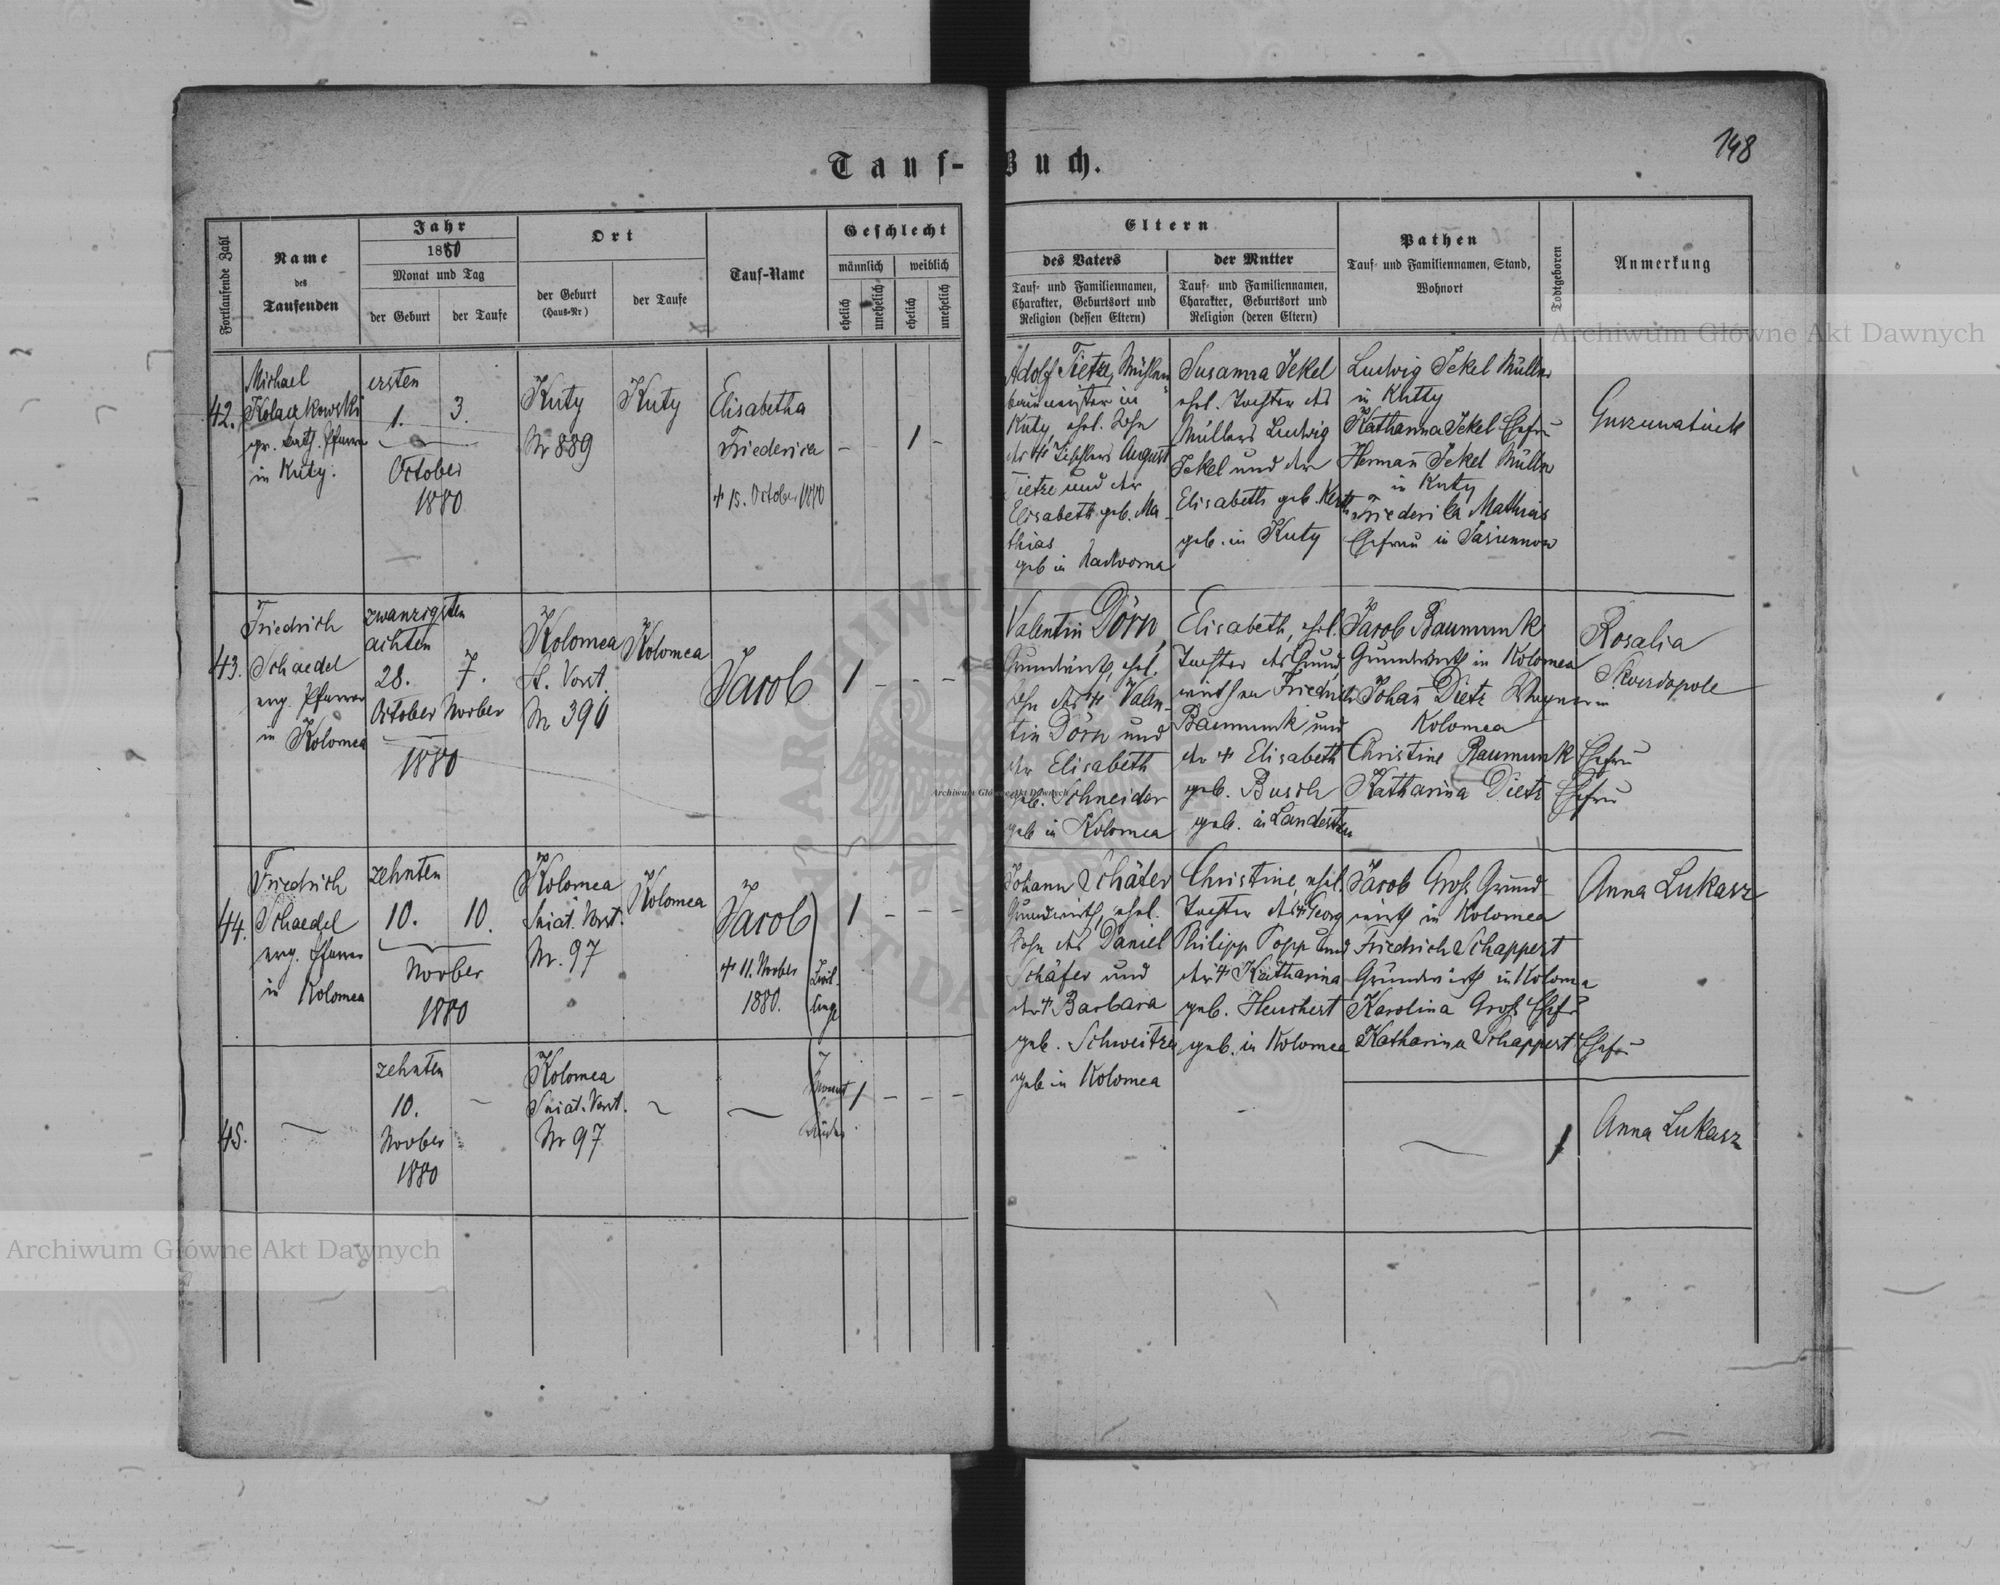 148
Tauf-Buch.
Fortlaufende Zahl
Name
des
Taufenden
Jahr
1880
Monat und Tag
der Geburt
der Taufe
Ort
der Geburt
(Haus-Nr)
der Taufe
Tauf-Name
Geschlecht
männlich
weiblich
ehelich
unehelich
ehelich
unehelich
Eltern
des Vaters
Tauf- und Familiennamen,
Charakter, Geburtsort und
Religion (dessen Eltern)
der Mutter
Tauf- und Familiennamen,
Charakter, Geburtsort und
Religion (deren Eltern)
Pathen
Tauf- und Familiennamen, Stand,
Wohnort
Todtgeboren
Anmerkung
42.
Michael
gr. kath. Pfarrer
in Kuty.
ersten
1.
3.
October
1880
Kuty
Nr 889
Kuty
Elisabetha
Friederica
† 15. October 1880
–
–
1
–
Adolf Tietze, Mühlen-
baumeister in
Kuty, ehel. Sohn
des † Tischlers August
Tietze und der
Elisabeth geb. Ma-
thias
geb in Nadworna
Susanna Jekel
ehel. Tochter des
Müllers Ludwig
Jekel und der
Elisabeth geb.
geb. in Kuty
Ludwig Jekel Müller
in Kutty
Katharina Jekel Ehefrau
Hermañ Jekel Müller
in Kuty
Friederika Mathias
Ehefrau in
43.
Friedrich
Schaedel
evg. Pfarrer
in Kolomea
zwanzigsten
achten
28.
7.
October Novber
1880
Kolomea
St. Vorst.
Nr 390
Kolomea
Jacob
1
–
–
–
Valentin Dörn,
Grundwirth, ehel.
Sohn des † Valen-
tin Dörn und
der Elisabeth
geb. Schneider
geb in Kolomea
Elisabeth, ehel.
Tochter des Grund-
wirthen Friedrich
Baumunk und
der † Elisabeth
geb. Busch
geb. in Landestreu
Jacob Baumunk
Grundwirth in Kolomea
Johañ Dietz Wagner in
Kolomea
Christine Baumunk Ehefrau
Katharina Dietz Ehefrau
Rosalia
Skwerdopole
44.
Friedrich
Schaedel
evg. Pfarrer
in Kolomea
zehnten
10.
10.
Novber
1880
Kolomea
Sniat. Vorst.
Nr. 97
Kolomea
Jacob
† 11. Novber
1880.
Zwil-
linge
1
–
–
–
Johann Schäfer
Grundwirth, ehel.
Sohn des Daniel
Schäfer und
der † Barbara
geb. Schweitzer
geb in Kolomea
Christine, ehel.
Tochter des † Georg
Philipp Popp und
der † Katharina
geb. Heuchert
geb. in Kolomea
Jacob Groß Grund
wirth in Kolomea
Friedrich Schappert
Grundwirth in Kolomea
Karolina Groß Ehefr
Katharina Schappert Ehefr
Anna Lukasz
45.
–
zehnten
10.
Novber
1880
–
Kolomea
Sniat. Vorst.
Nr 97
–
–
1
–
–
–
–
1
Anna Lukasz
Archiwum Główne Akt Dawnych
Archiwum Główne Akt Dawnych
Archiwum Główne Akt Dawnych